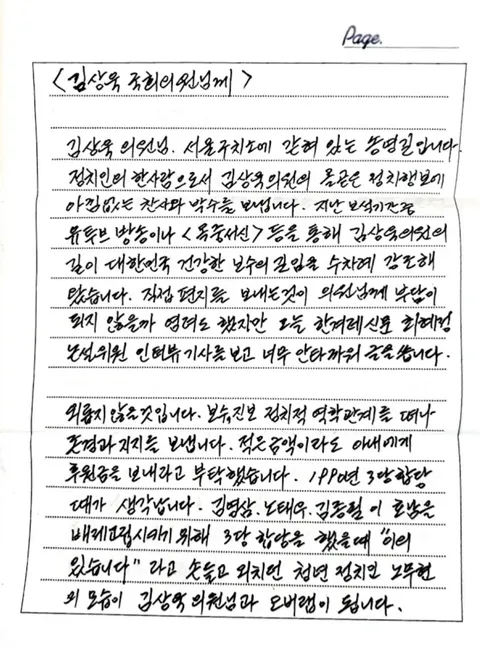 Page.
<김상욱 국회의원님께>
김상욱 의원님. 서울구치소에 갇혀 있는 송영길입니다.
정치인의 한사람으로서 김상욱의원의 올곧은 정치행보에
아낌없는 찬사와 박수를 보냅니다. 지난 보석기간중
유투브 방송이나 <옥중서신> 등을 통해 김상욱의원의
길이 대한민국 건강한 보수의 길임을 수차례 강조해
왔습니다. 직접 편지를 보내는것이 의원님께 부담이
되지 않을까 염려도 했지만 오늘 한겨레신문 최혜정
논설위원 인터뷰기사를 보고 너무 안타까워 글을 씁니다.
외롭지 않을것입니다. 보수,진보 정치적 역학관계를 떠나
존경과 지지를 보냅니다. 적은금액이라도 아내에게
후원금을 보내라고 부탁했습니다. 1990년 3당합당
때가 생각납니다. 김영삼.노태우.김종필 이 호남을
배제고립시키기 위해 3당 합당을 했을때 "이의
있습니다" 라고 손들고 외치던 청년 정치인 노무현
의 모습이 김상욱 의원님과 오버랩이 됩니다.